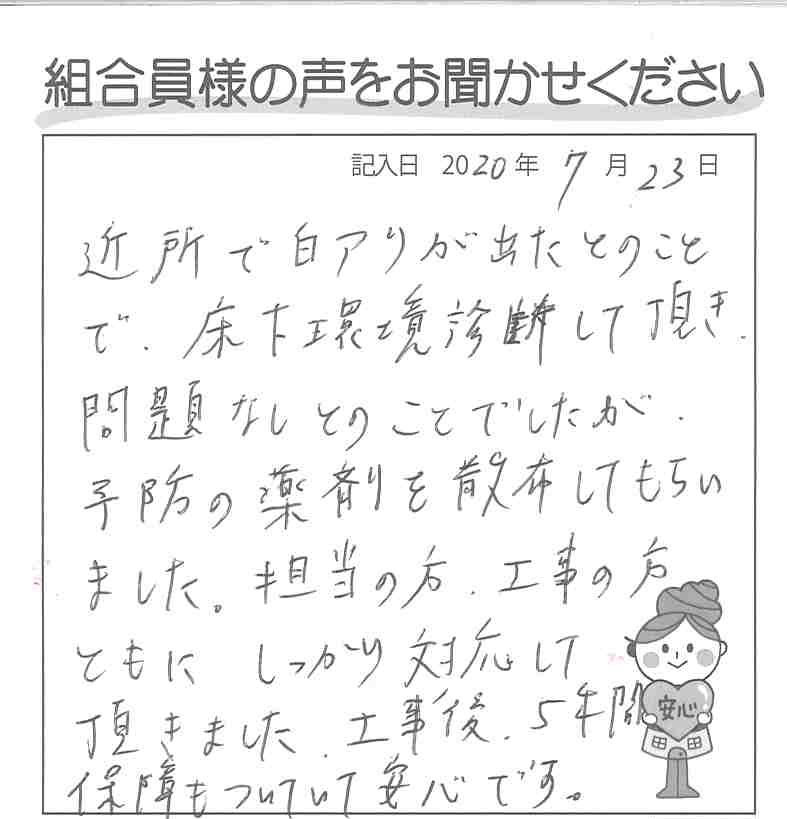 組合員様の声をお聞かせください
記入日 2020年 7月23日
近所で白アリが出たとのこと
で、床下環境診断して頂き、
問題なしとのことでしたが、
予防の薬剤を散布してもらい
ました。担当の方、工事の方
ともに しっかり対応して
頂きました。工事後、5年間
保障もついていて安心です。
安心